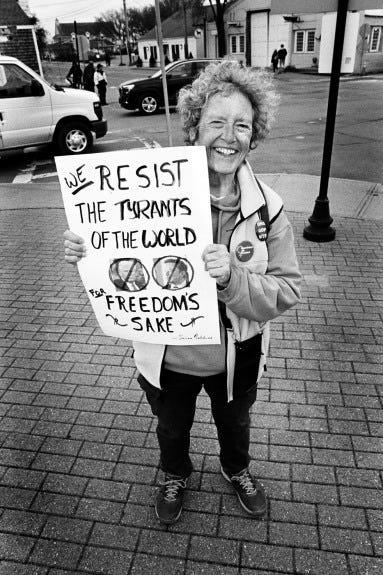 WE RESIST
THE TYRANTS
OF THE WORLD
FOR FREEDOM'S
SAKE